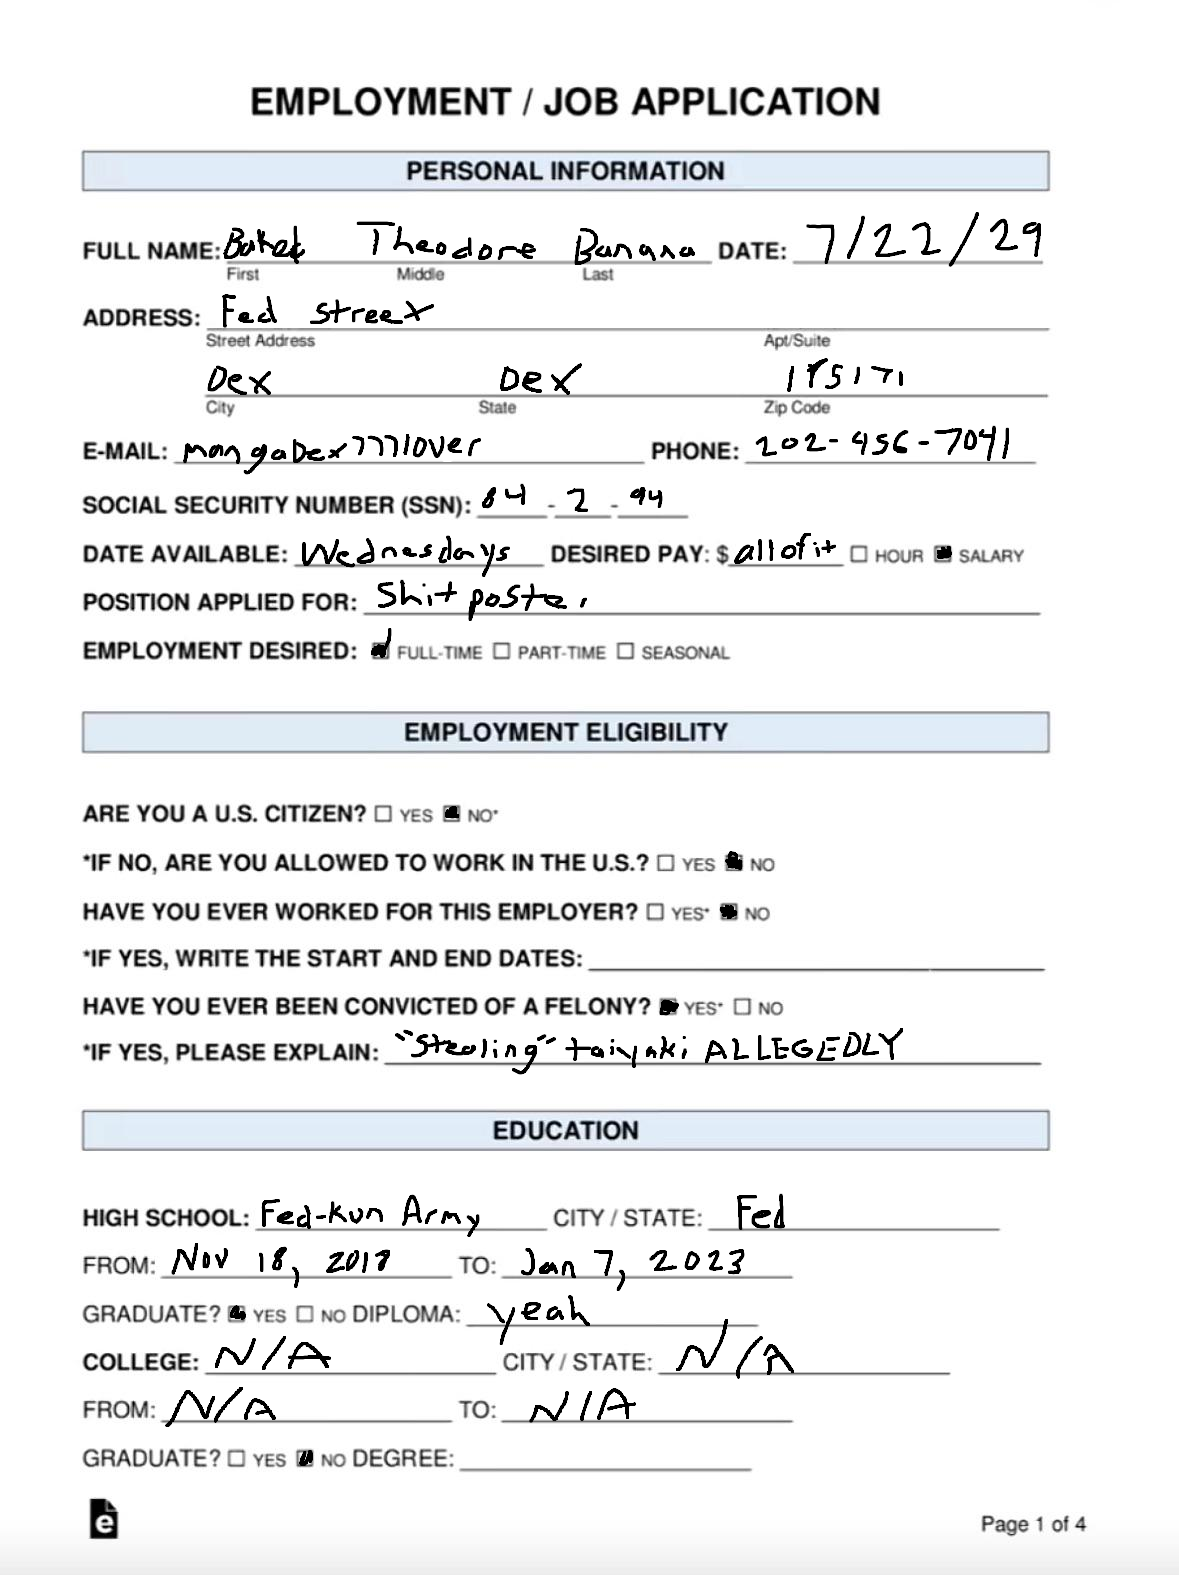 EMPLOYMENT / JOB APPLICATION
PERSONAL INFORMATION
FULL NAME: Theodore Banana DATE: 7/22/29
First Middle Last
ADDRESS: Fed street
Street Address Apt/Suite
Dex Dex
City State Zip Code
E-MAIL: PHONE: 202-456-7041
SOCIAL SECURITY NUMBER (SSN): 84 - 2 - 94
DATE AVAILABLE: Wednesdays DESIRED PAY: $ all of it HOUR SALARY
POSITION APPLIED FOR: Shit poster
EMPLOYMENT DESIRED: FULL-TIME PART-TIME SEASONAL
EMPLOYMENT ELIGIBILITY
ARE YOU A U.S. CITIZEN? YES NO*
*IF NO, ARE YOU ALLOWED TO WORK IN THE U.S.? YES NO
HAVE YOU EVER WORKED FOR THIS EMPLOYER? YES* NO
*IF YES, WRITE THE START AND END DATES:
HAVE YOU EVER BEEN CONVICTED OF A FELONY? YES* NO
*IF YES, PLEASE EXPLAIN: "Stealing" taiyaki ALLEGEDLY
EDUCATION
HIGH SCHOOL: Fed-kun Army CITY / STATE: Fed
FROM: Nov 18, TO: Jan 7, 2023
GRADUATE? YES NO DIPLOMA: yeah
COLLEGE: N/A CITY / STATE: N/A
FROM: N/A TO: N/A
GRADUATE? YES NO DEGREE:
e
Page 1 of 4